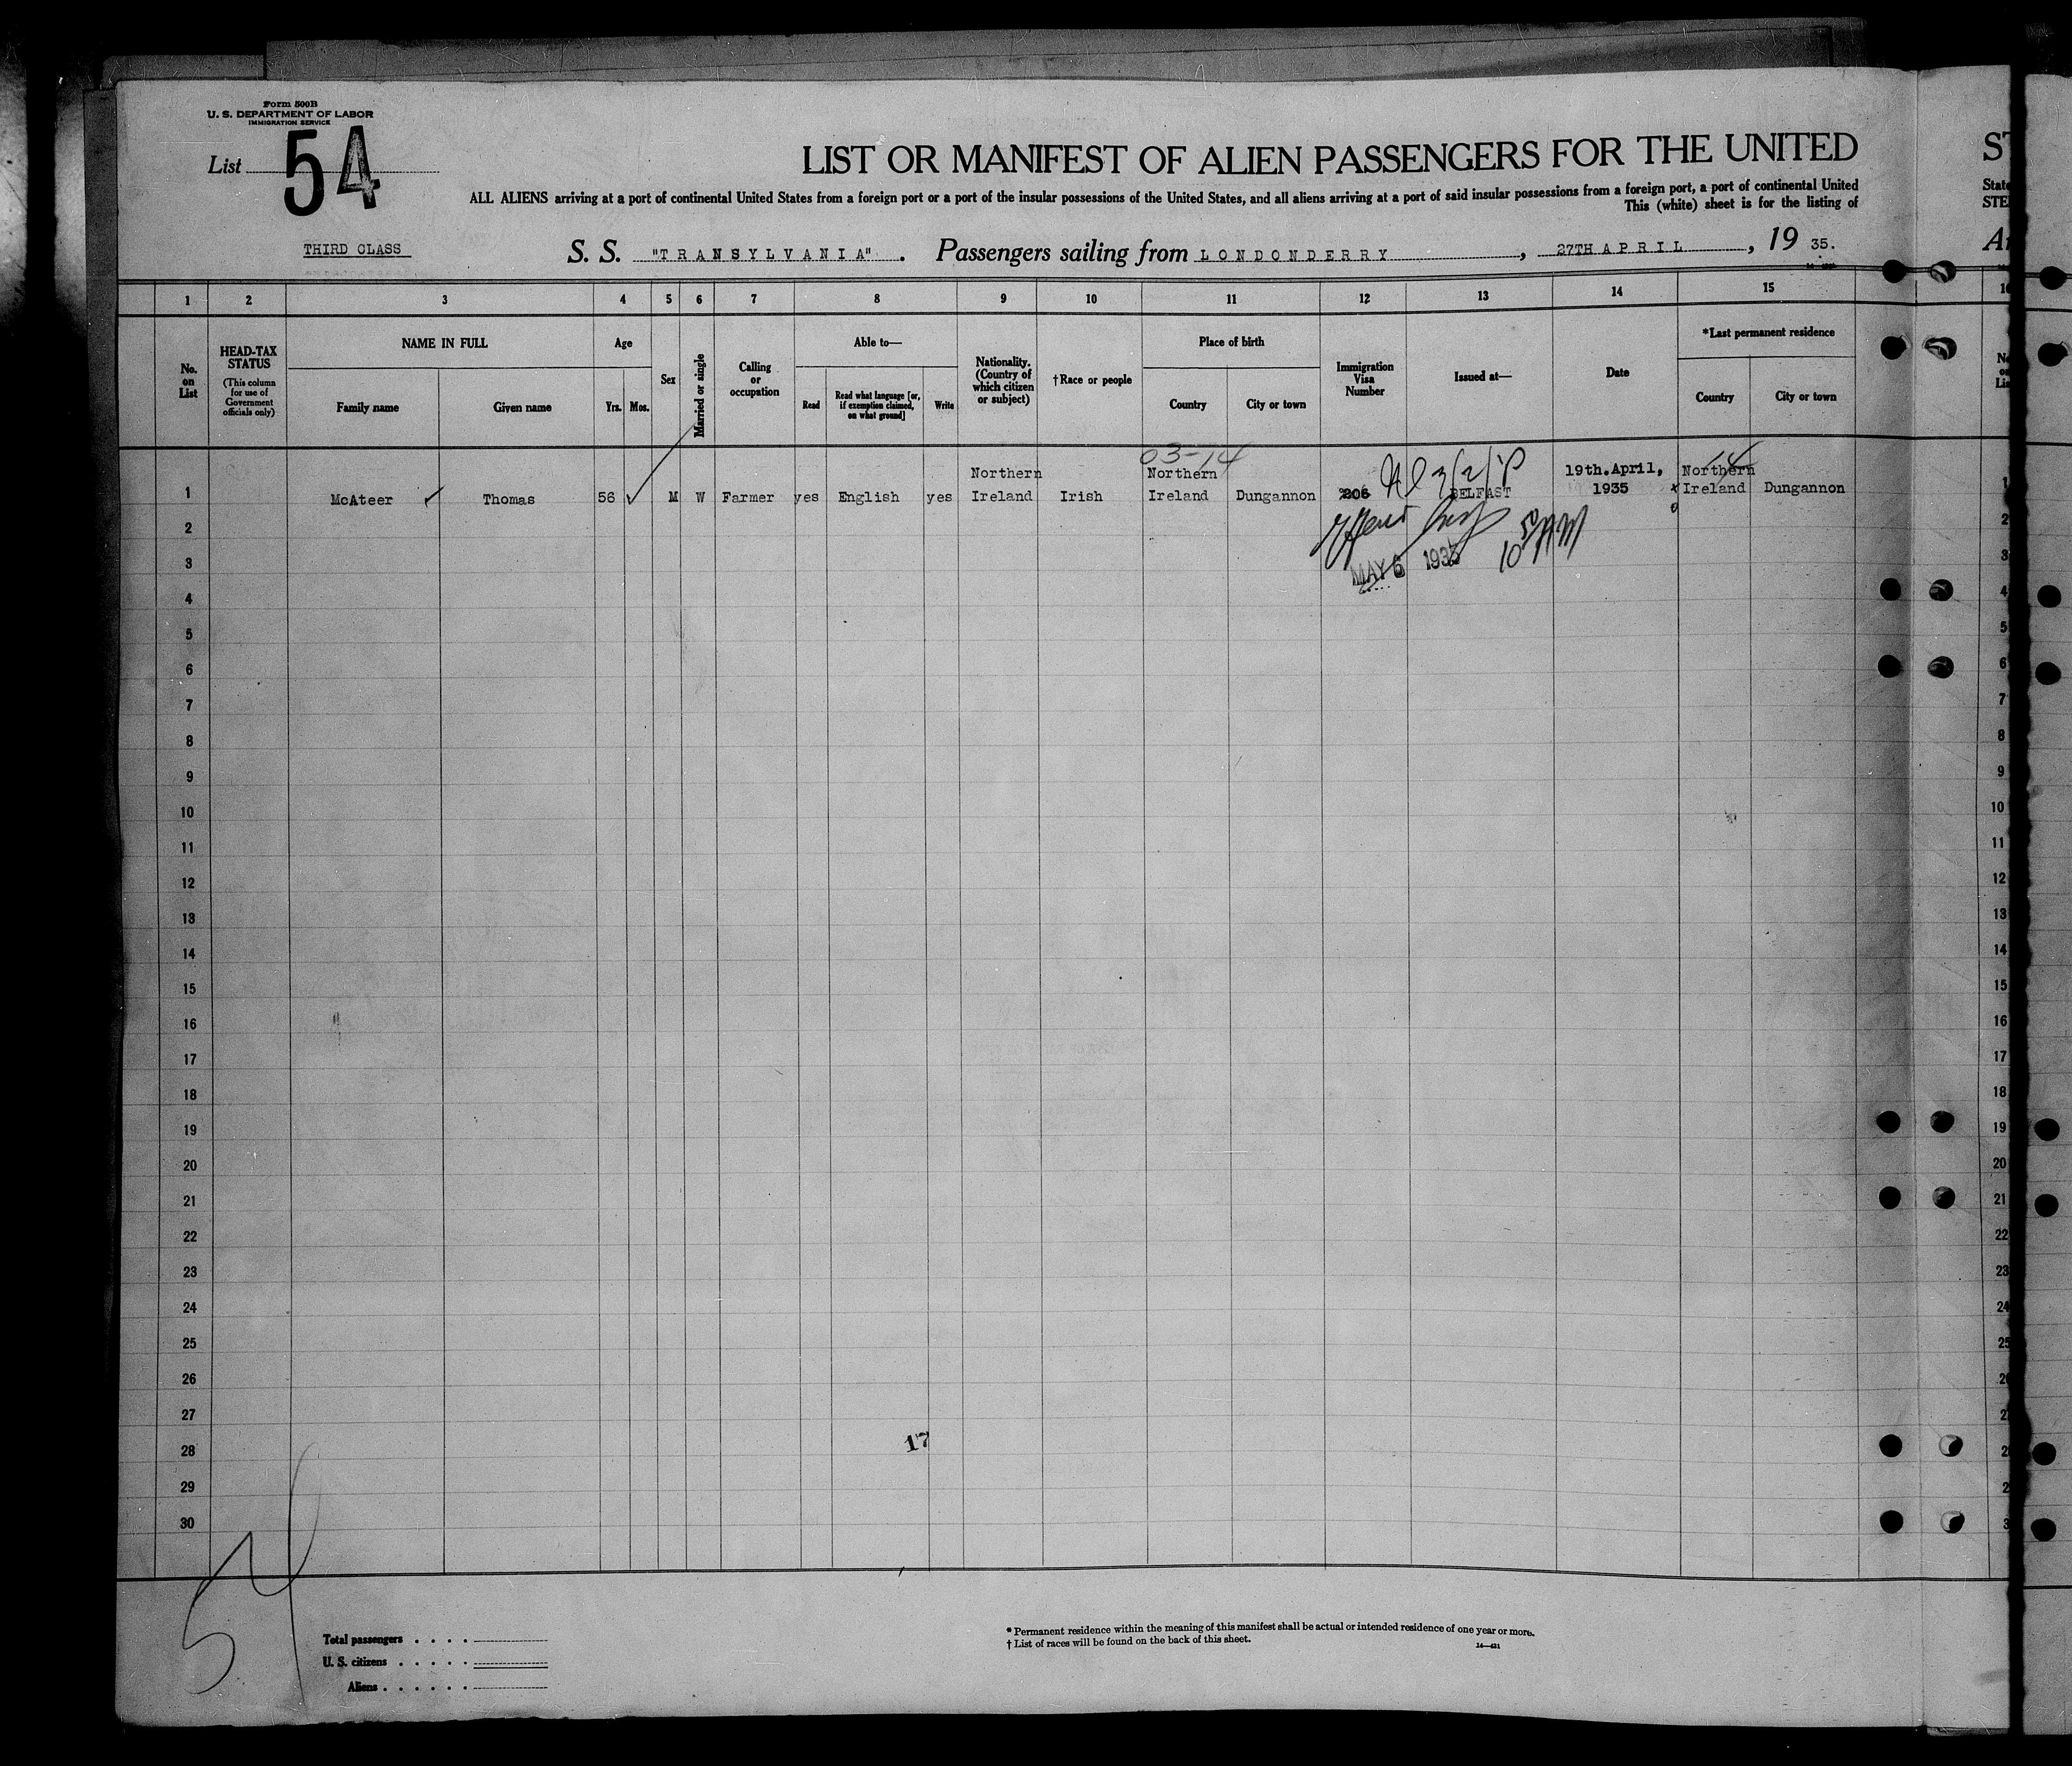 Form 500B
U. S. DEPARTMENT OF LABOR
IMMIGRATION SERVICE
List 54
LIST OR MANIFEST OF ALIEN PASSENGERS FOR THE UNITED
ALL ALIENS arriving at a port of continental United States from a foreign port or a port of the insular possessions of the United States, and all aliens arriving at a port of said insular possessions from a foreign port, a port of continental United
This (white) sheet is for the listing of
THIRD CLASS
S. S. "TRANSYLVANIA". Passengers sailing from LONDONDERRY, 27TH APRIL, 19 35.
1 2 3 4 5 6 7 8 9 10 11 12 13 14 15
No. on List
HEAD-TAX STATUS
(This column for use of Government officials only)
NAME IN FULL
Family name
Given name
Age
Yrs.
Mos.
Sex
Married or single
Calling or occupation
Able to—
Read
Read what language [or, if exemption claimed, on what ground]
Write
Nationality. (Country of which citizen or subject)
†Race or people
Place of birth
Country
City or town
Immigration Visa Number
Issued at—
Date
*Last permanent residence
Country
City or town
03-14
14
1 McAteer Thomas 56 M W Farmer yes English yes Northern Ireland Irish Northern Ireland Dungannon 206 BELFAST 19th.April, 1935 Northern Ireland Dungannon
MAY 6 1935
2
3
4
5
6
7
8
9
10
11
12
13
14
15
16
17
18
19
20
21
22
23
24
25
26
27
17
28
29
30
54
Total passengers . . . .
U. S. citizens . . . . .
Aliens . . . . . .
* Permanent residence within the meaning of this manifest shall be actual or intended residence of one year or more.
† List of races will be found on the back of this sheet.